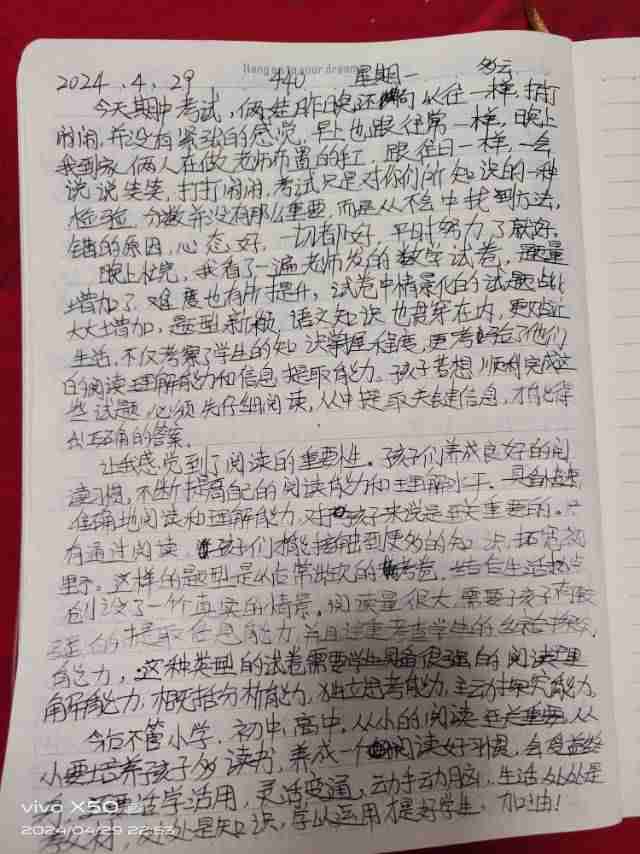 Hang on to your dreams
2024.4.29 440 星期一 多云
今天期中考试,俩娃昨晚还以往一样,打打
闹闹,并没有紧张的感觉,早上也跟往常一样,晚上
我到家俩人在做老师布置的,跟往日一样,一会
说说笑笑,打打闹闹,考试只是对你们所知识的一种
检验,分数并没有那么重要,而是从不会中找到方法,
错的原因,心态好,一切都好,平时努力了就好。
晚上检完,我看了一遍老师发的数学试卷,题量
增加了,难度也有所提升,试卷中情景化的试题占比
大大增加,题型新颖,语文知识也贯穿在内,更贴近
生活,不仅考察了学生的知识掌握程度,更考验了他们
的阅读理解能力和信息提取能力。孩子若想顺利完成这
些试题,必须先仔细阅读,从中提取关键信息,才能得
出正确的答案。
让我感觉到了阅读的重要性。孩子们养成良好的阅
读习惯,不断提高自己的阅读能力和理解水平。具备快速
准确地阅读和理解能力,对孩子来说是至关重要的。只
有通过阅读,孩子们才能接触到更多的知识,拓宽视
野。这样的题型是以往常出次的考卷,结合生活热点
创设了一个真实的情景。阅读量很大,需要孩子有较
强的提取信息能力,并且注重考查学生的综合探究
能力,这种类型的试卷需要学生具备很强的阅读理
解能力,概括分析能力,独立思考能力,主动探究能力。
今后不管小学,初中,高中,从小的阅读至关重要,从
小要培养孩子多读书,养成一个阅读好习惯,会受益终
活学活用,灵活变通,动手动脑,生活处处是
教材,处处是知识,学以运用才是好学生,加油!
vivo X50
2024/04/29 22:53